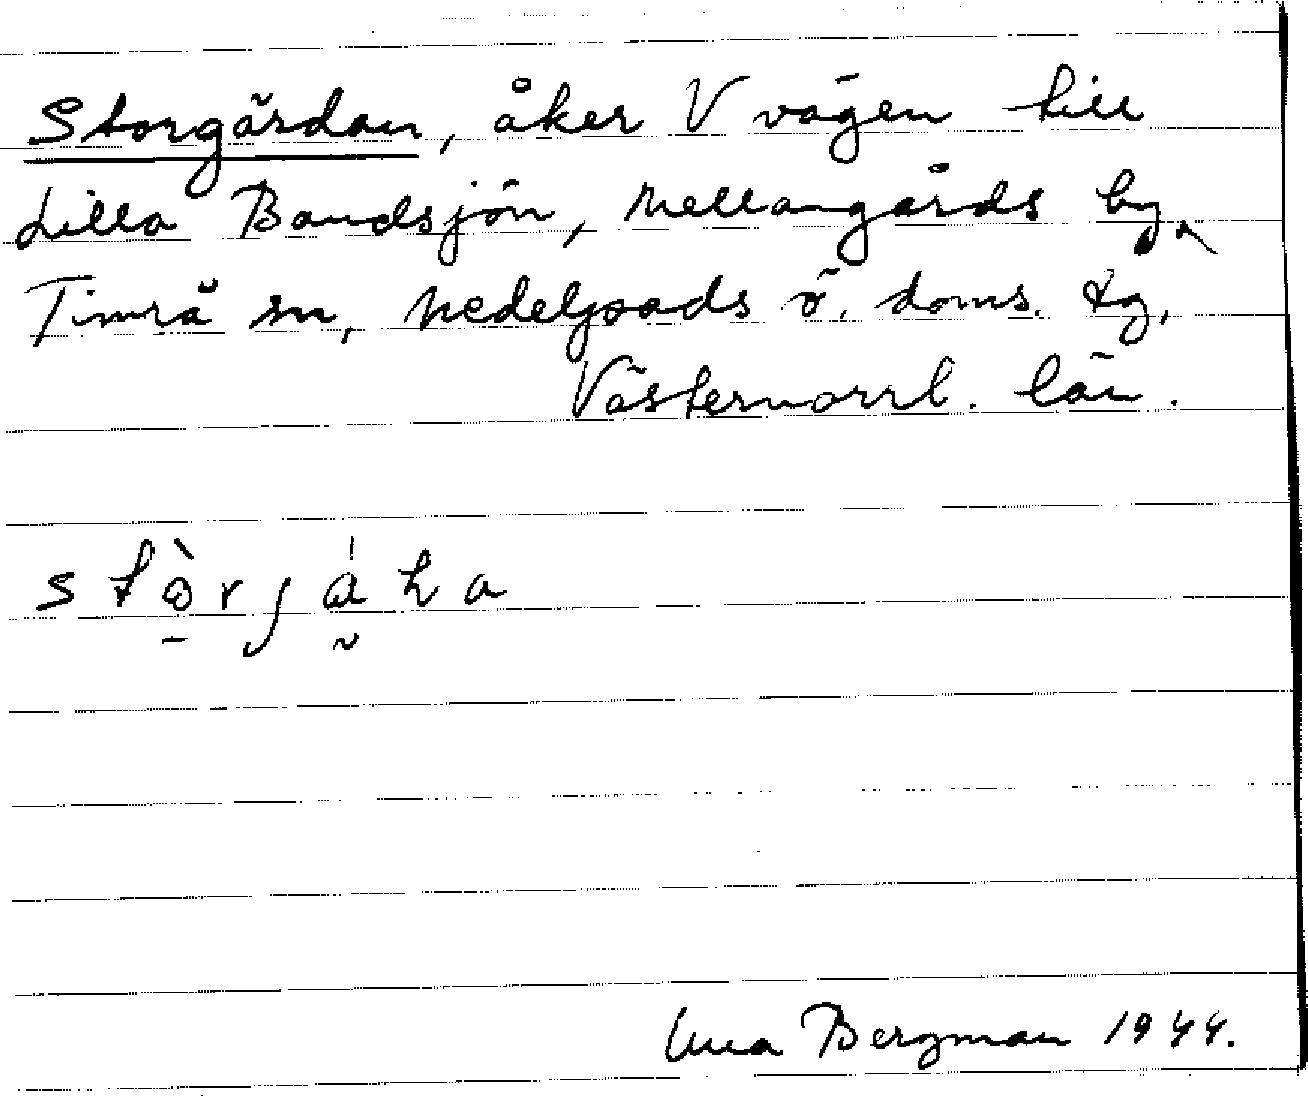 Storgärdan, åker V vägen till
Lilla Bandsjön, Mellangårds by,
Timrå sn, Medelpads ö. doms. tg,
Västernorrl. län.
Bergman 1944.